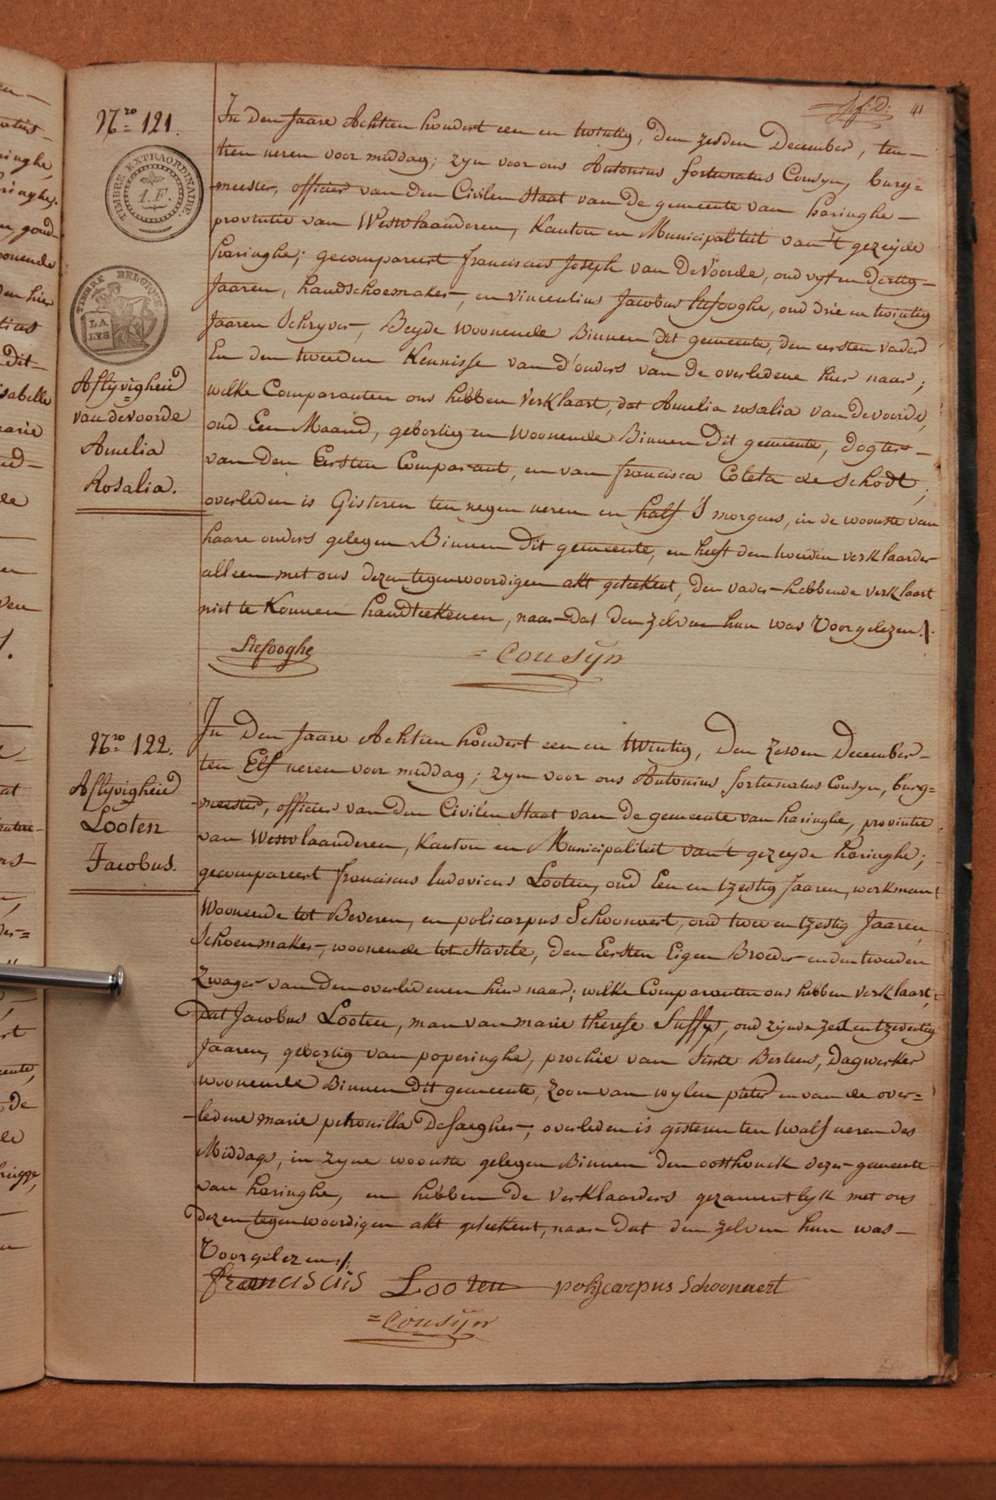 41
Nro 121.
TIMBRE EXTRAORDINAIRE
1. F.
TIMBRE BELGIQUE
LA
LYS
Aflyvigheid
van de Voorde
Amelia
Rosalia.
In den Jaare Achtien hondert een en twintig, den zesden December, ten
thien ueren voor middag; zyn voor ons Antonius fortunatus Cousyn, burg=
-meester, officier van den Civilen Staat van de gemeente van haringhe-
provintie van Westvlaanderen, Kanton en Municipaliteit van't gezeyde
haringhe; gecompareert franciscus Joseph van De Voorde, oud vyf en dertig-
Jaaren, handschoemaker, en vincentius Jacobus Stefooghe, oud drie en twintig
Jaaren Schryver, Beyde woonende Binnen dit gemeente, den eersten vader
En den tweeden Kennisse van d'ouders van de overledene hier naar;
welke Comparanten ons hebben Verklaart, dat Amelia rosalia van de voorde,
oud Een Maand, gebortig en Woonende Binnen Dit gemeente, Dogter-
van den Eersten Comparant, en van francisca Coleta de Schodt;
overleden is Gisteren ten negen ueren en half S'morgens, in de woonste van
haare ouders gelegen Binnen Dit gemeente, en heeft den tweeden verklaarder
alleen met ons dezen tegenwoordigen akt geteekent, den vader hebbende verklaart
niet te Konnen handteekenen, naar Dat den zelven hun was Voorgelezen./.
Stefooghe =Cousyn
Nro 122.
Aflyvigheid
Looten
Jacobus.
In Den Jaare Achtien hondert een en twintig, Den zesden December-
ten Elf ueren voor middag; zyn voor ons Antonius fortunatus Cousyn, burg=
-meester, officier van den Civilen Staat van de gemeente van haringhe, provintie
van Westvlaanderen, Kanton en Municipaliteit van't gezeyde haringhe;
gecompareert franciscus ludovicus Looten, oud Een en tzestig Jaaren, werkman
Woonende tot Beveren, en policarpus Schoonaert, oud twee en tzestig Jaaren,
Schoenmaker, woonende tot Stavele, den Eersten Eigen Broeder en den tweeden
Zwager van den overledenen hier naar; welke Comparanten ons hebben verklaart,
Dat Jacobus Looten, man van marie therese oud zynde Jaaren, gebortig van poperinghe, prochie van Sinte Bertens, Dagwerker
woonende Binnen Dit gemeente, Zoon van wylen pieter en van de over-
-ledene marie petronilla Desaegher, overleden is gisteren ten twalf ueren des
Middags, in zyne woonste gelegen Binnen den oosthouck dezer gemeente
van haringhe, en hebben de verklaarders gezamentlyk met ons
dezen tegenwoordigen akt geteekent, naar Dat den zelven hun was-
Voorgelezen./.
franciscus Looten polycarpus Schoonaert
=Cousyn